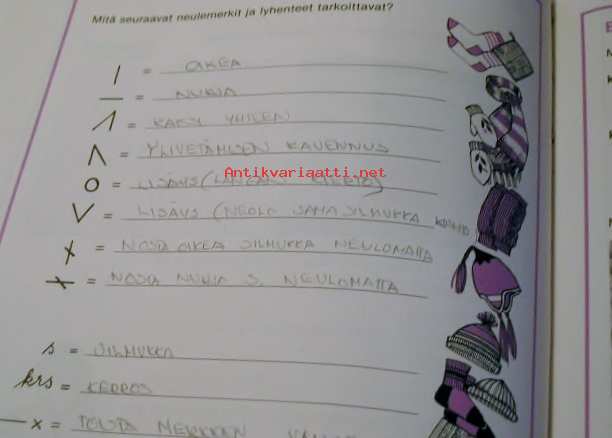 Mitä seuraavat neulemerkit ja lyhenteet tarkoittavat?
| = OIKEA
— = NURJA
= KAKSI YHTEEN
Λ = YLIVETÄMISEN KAVENNUS
Antikvariaatti.net
O = LISÄYS (LANGAN KIERTO)
V = LISÄYS (NEULO SAMA SILMUKKA
= NOSTA OIKEA SILMUKKA NEULOMATTA
= NOSTA NURJA S. NEULOMATTA
s = SILMUKKA
krs = KERROS
— x = TOISTA MERKKIEN